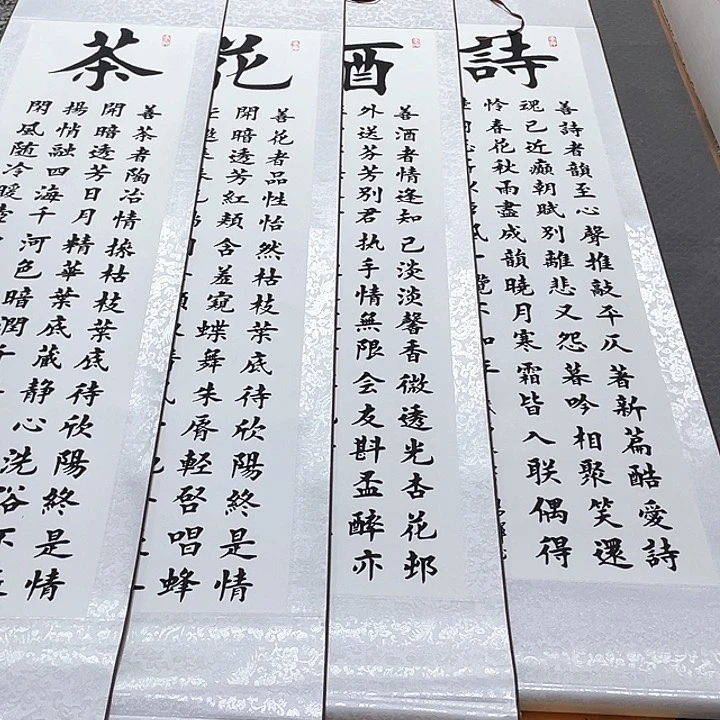 詩
善詩者韻至心聲推敲平仄著新篇酷愛詩
瑰已近癲朝賦别離悲又怨暮吟相聚笑還
怜春花秋雨盡成韻曉月寒霜皆入联偶得
酒
善酒者情逢知已淡淡馨香微透光杏花邨
外送芬芳别君执手情無限会友斟盃醉亦
花
善花者品性怡然枯枝葉底待欣陽終是情
開暗透芳紅頬含羞窺蝶舞朱脣軽启唱蜂
茶
善茶者陶冶情操枯枝葉底待欣陽終是情
開暗透芳日月精華葉底蔵静心洗
揚悄融四海千河色暗潤千
閑風随冷暖